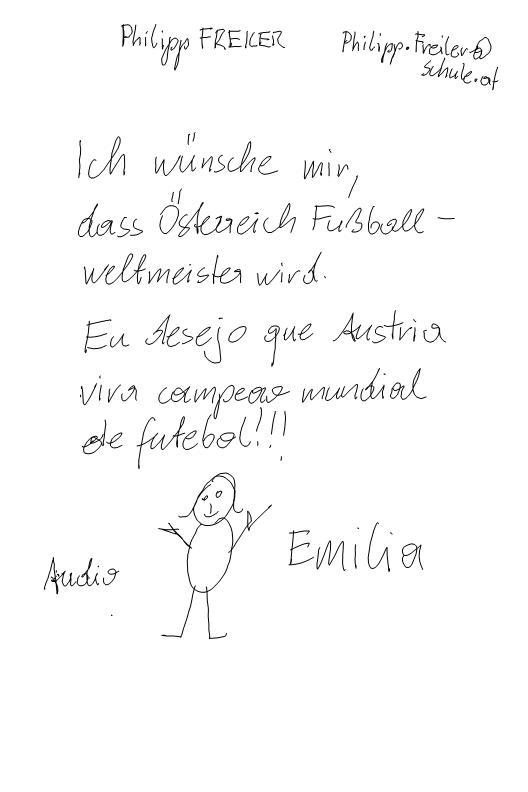 Philipp FREILER
Philipp.Freiler@
schule.at
Ich wünsche mir,
dass Österreich Fußball-
weltmeister wird.
Eu desejo que Austria
vira campeao mundial
de futebol!!!
Emilia
Audio